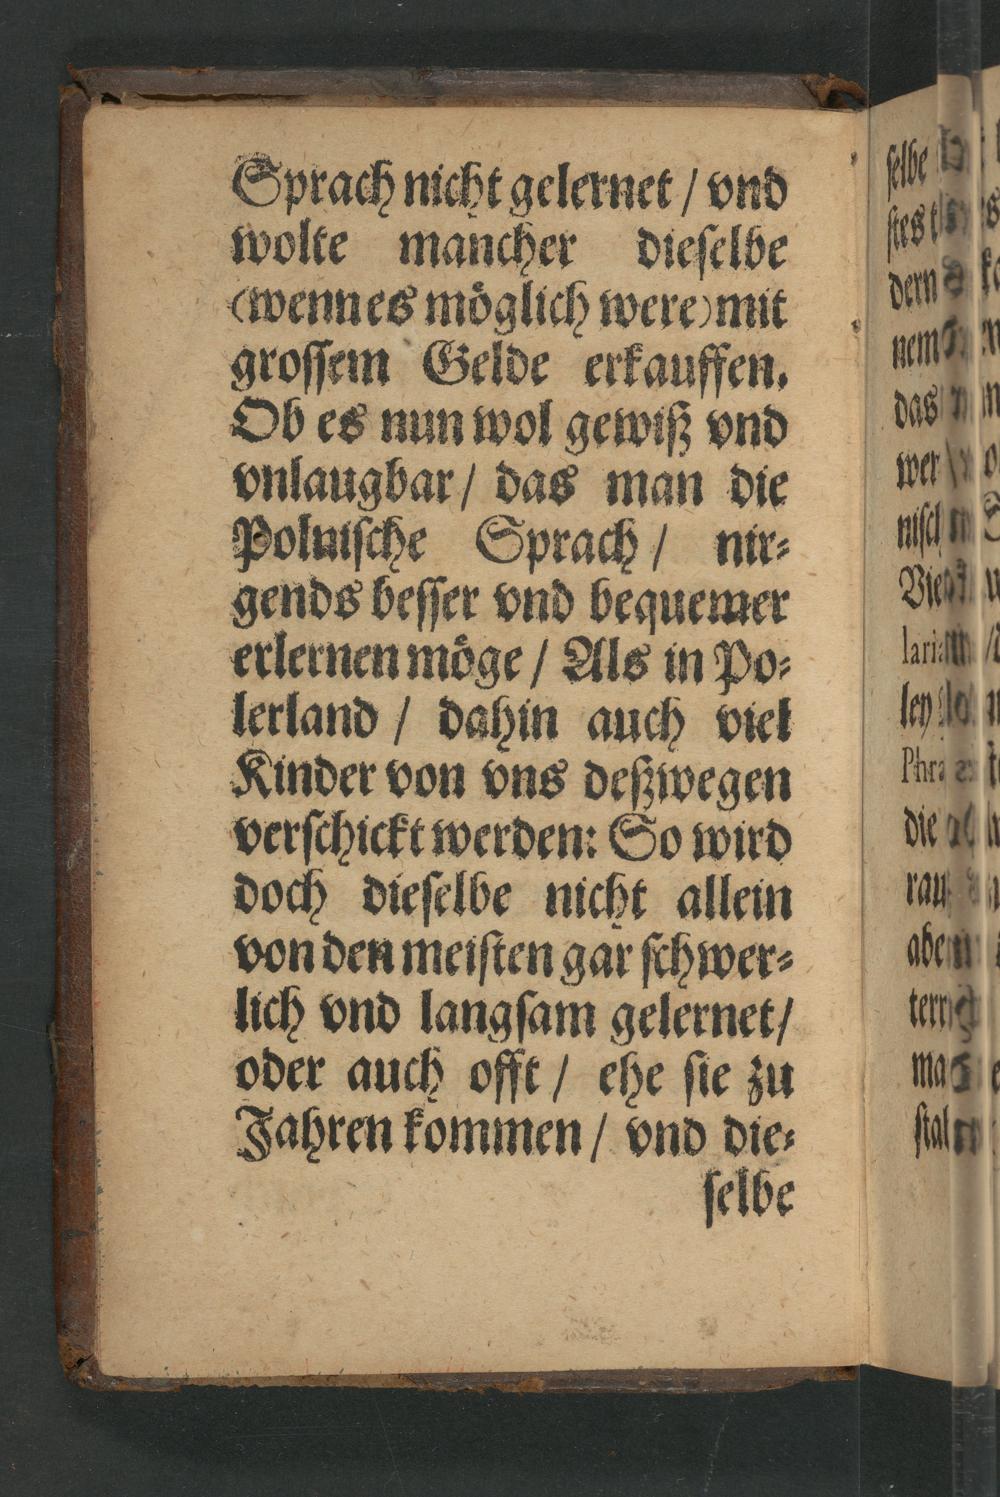 Sprach nicht gelernet / vnd
wolte mancher dieſelbe
(wenn es möglich were) mit
groſſem Gelde erkauffen.
Ob es nun wol gewiß vnd
vnlaugbar / das man die
Polniſche Sprach / nir⸗
gends beſſer vnd bequemer
erlernen möge / Als in Po⸗
lerland / dahin auch viel
Kinder von vns deßwegen
verſchickt werden: So wird
doch dieſelbe nicht allein
von den meiſten gar ſchwer⸗
lich vnd langſam gelernet /
oder auch offt / ehe ſie zu
Jahren kommen / vnd die⸗
ſelbe
ſelbe
dern
nem
das
wer
die